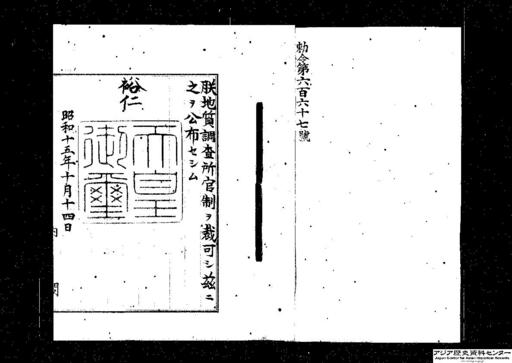 勅令第六百六十七號
朕地質調査所官制ヲ裁可シ玆ニ
之ヲ公布セシム
裕仁
天皇
御璽
昭和十五年十月十四日
内閣
アジア歴史資料センター
Japan Center for Asian Historical Records